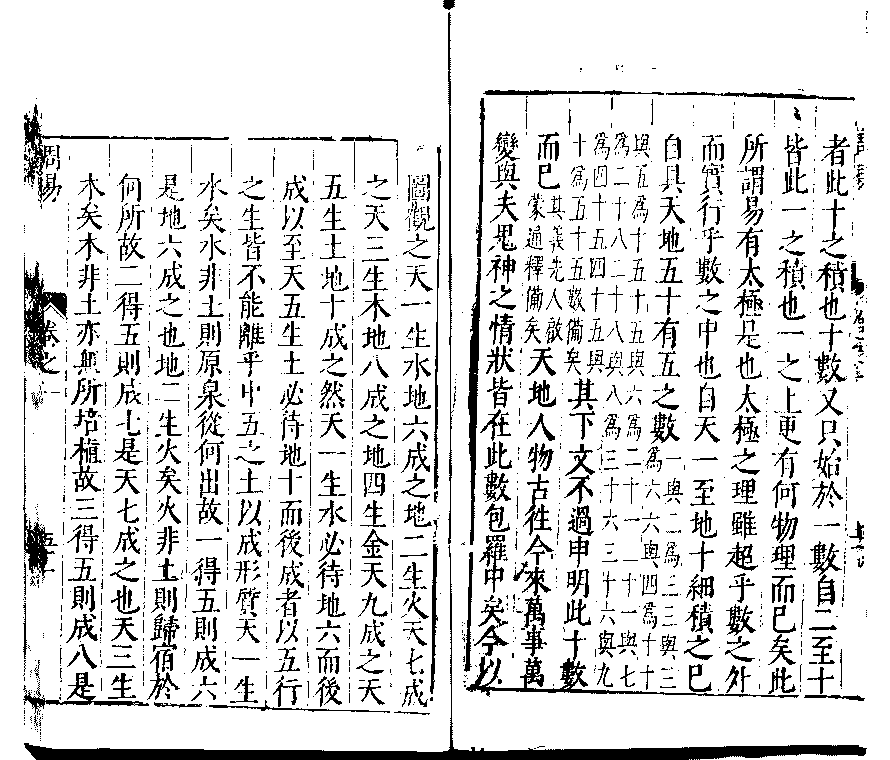 者此十之積也十數又只始於一數自二至十
皆此一之積也一之上更有何物理而已矣此
所謂易有太極是也太極之理雖超乎數之外
而實行乎數之中也自天一至地十細積之已
自具天地五十有五之數一與二爲三三與三
爲六六與四爲十十
與五爲十五十五與六爲二十一二十一與七
爲二十八二十八與八爲三十六三十六與九
爲四十五四十五與
十爲五十五數備矣其下文不過申明此十數
而已其義先人啟
蒙通釋備矣天地人物古往今來萬事萬
變與夫鬼神之情狀皆在此數包羅中矣今以
圖觀之天一生水地六成之地二生火天七成
之天三生木地八成之地四生金天九成之天
五生土地十成之然天一生水必待地六而後
成以至天五生土必待地十而後成者以五行
之生皆不能離乎中五之土以成形質天一生
水矣水非土則原泉從何出故一得五則成六
是地六成之也地二生火矣火非土則歸宿於
何所故二得五則成七是天七成之也天三生
木矣木非土亦無所培植故三得五則成八是
周易
卷之
五十